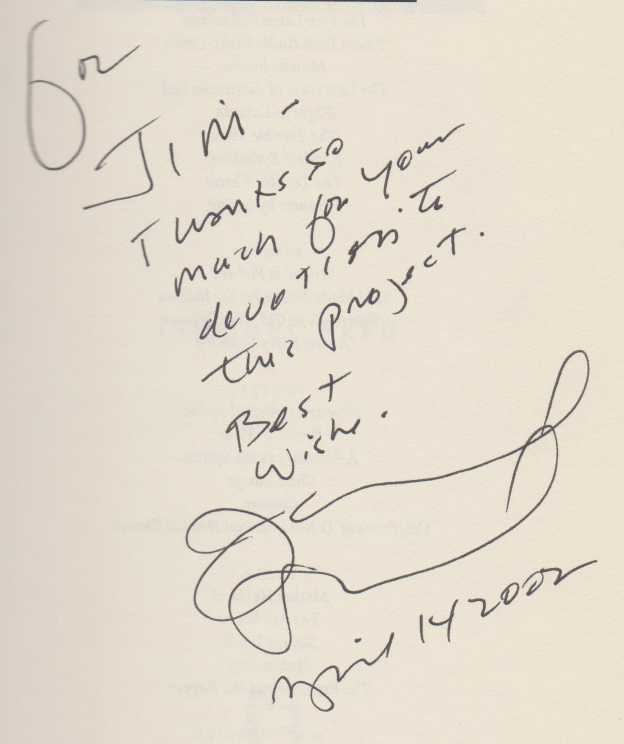 For
Jim -
Thanks so
much for your
devotion to
this project.
Best
Wishe.
April 14 2002